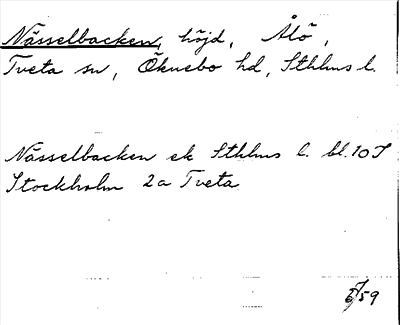 Nässelbacken, höjd, Ålö,
Tveta sn, Öknebo hd, Sthlms l.
Nässelbacken ek Sthlms l. bl. 10 S
Stockholm 2a Tveta